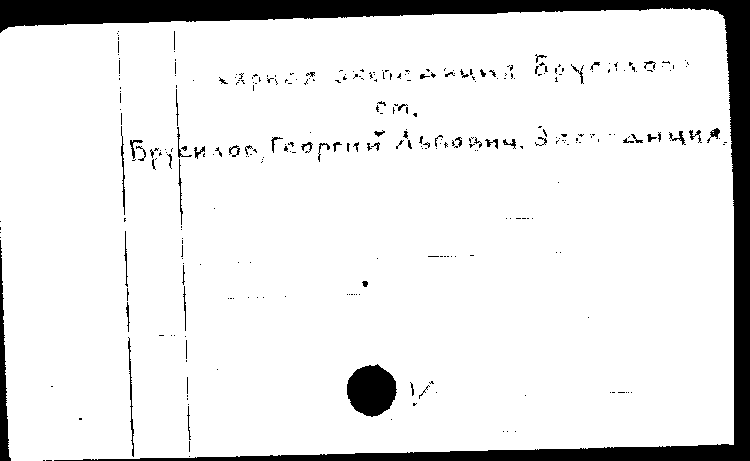 экспедиция Брусилова
см.
Брусилов, Георгий Львович. Экспедиция.
V